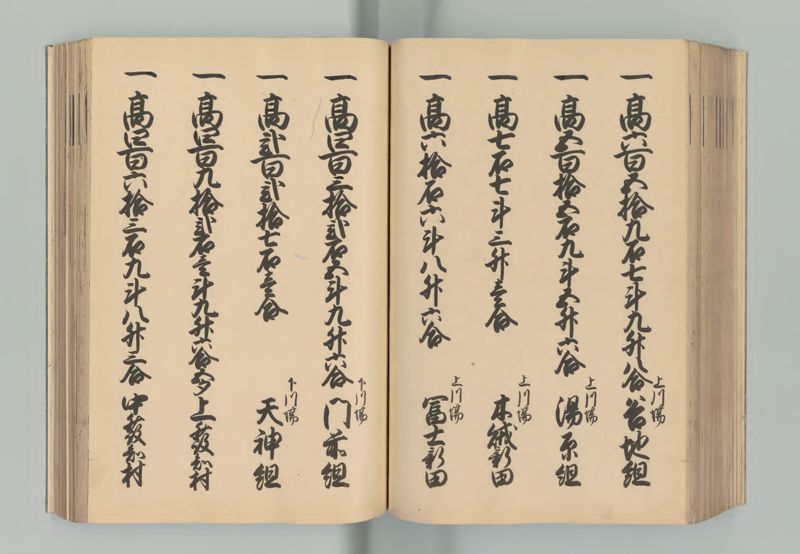 一 高六百五拾九石七斗九升八合 上川場 谷地組
一 高五百拾五石九斗五升六合 上川場 湯原組
一 高七石七斗三升壱合 上川場 木賊新田
一 高六拾石六斗八升六合 上川場 冨士新田
一 高四百三拾弐石五斗九升六合 下川場 門前組
一 高弐百弐拾七石壱合 下川場 天神組
一 高四百九拾弐石壱斗九升六合五夕 上発知村
一 高四百六拾三石九斗八升三合 中発知村